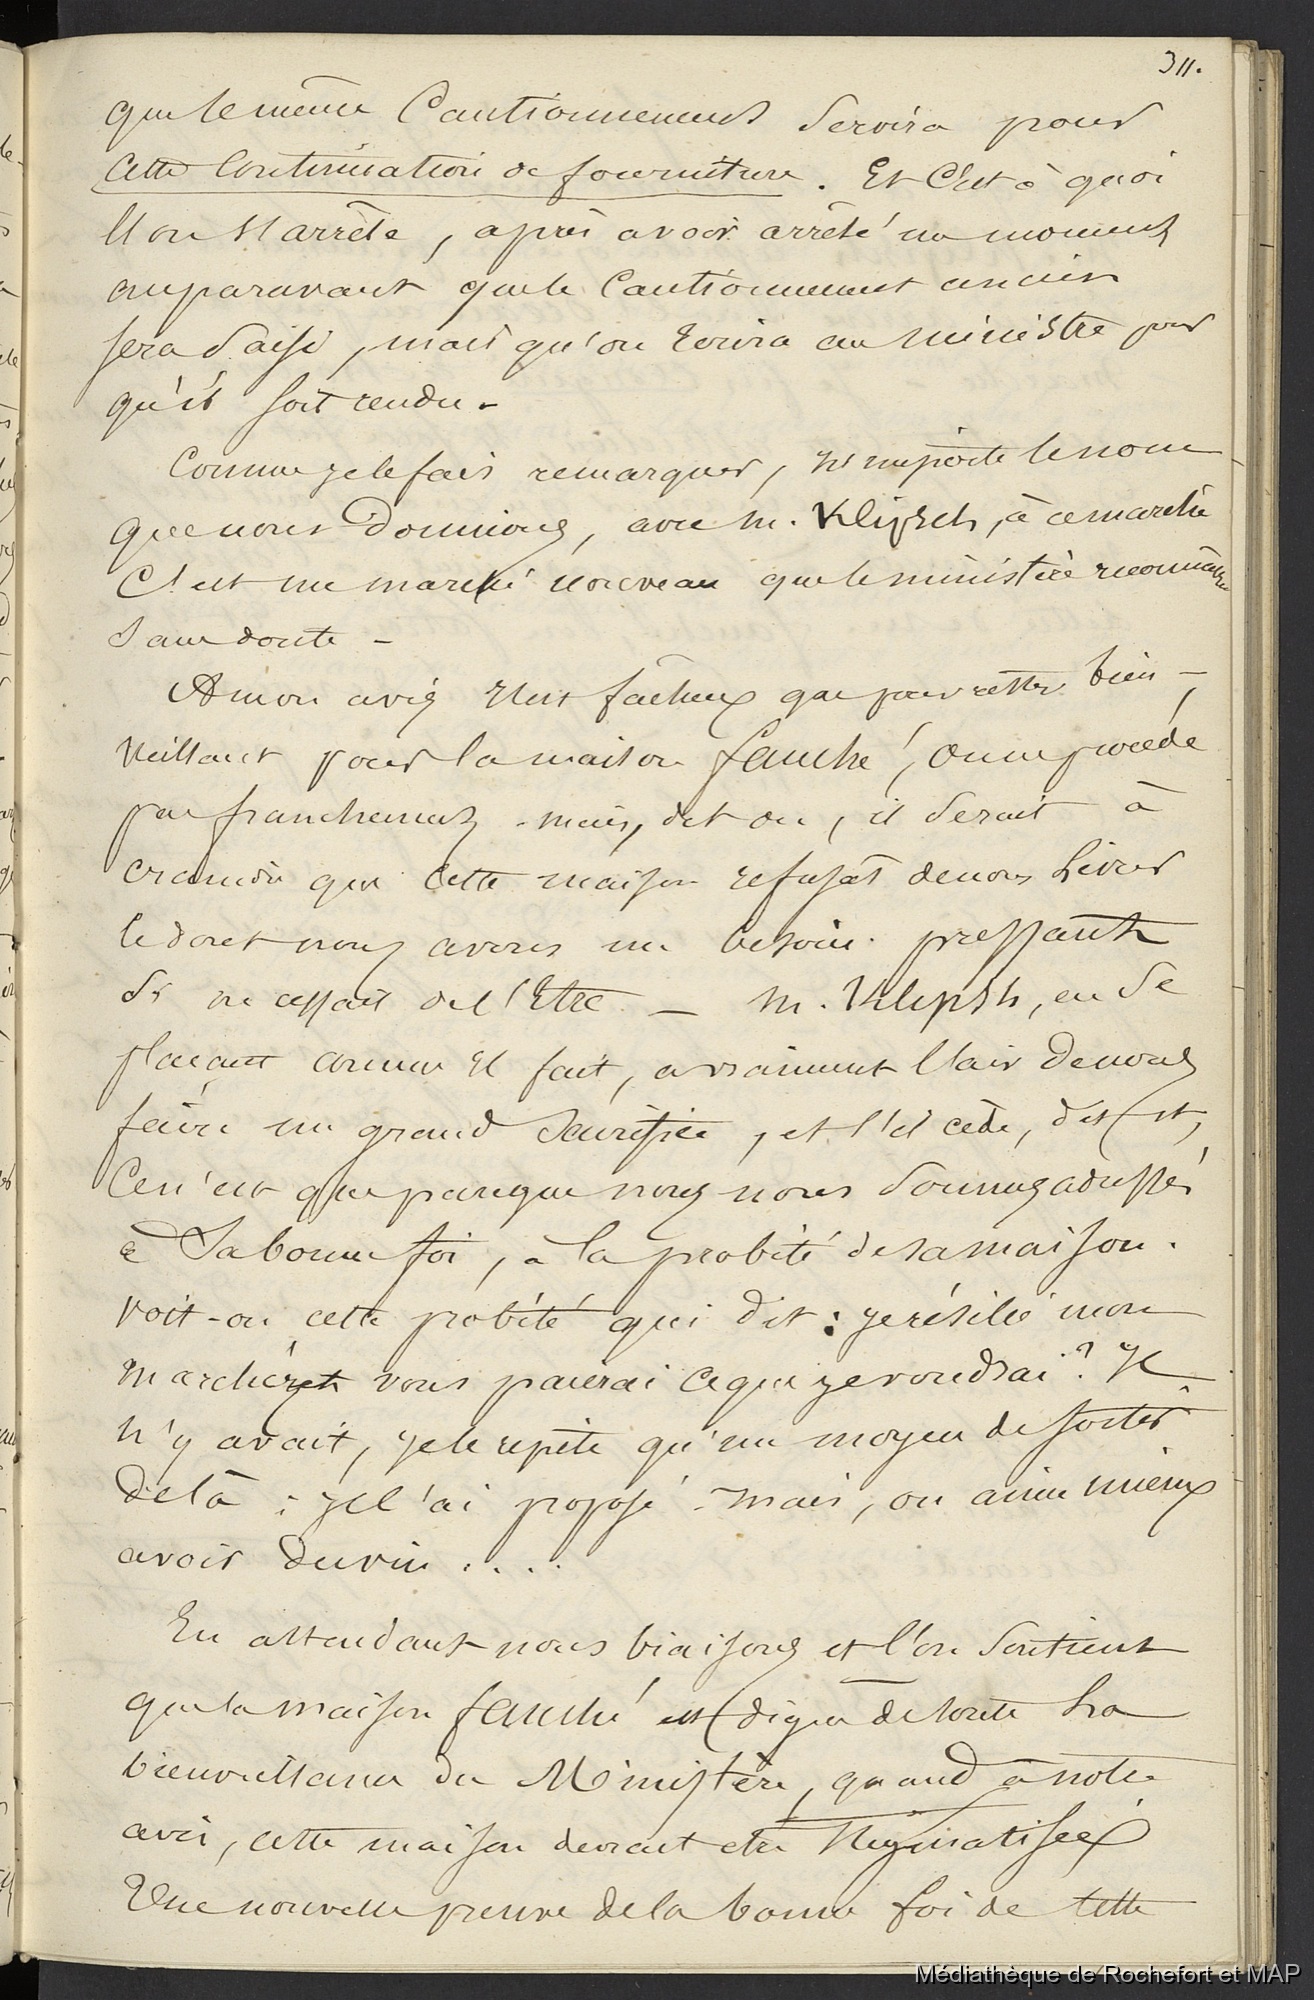 311.
que le même Cautionnement Servira pour
Cette Continuation de fourniture. Et C'est à quoi
l'on s'arrête, après avoir arrêté un moment
auparavant que le Cautionnement ancien
sera Saisi, mais qu'on Ecrira au ministre pour
qu'il soit rendu -
Comme je le fais remarquer, n'importe le nom
que nous Donnions, avec M. Klipsch, à ce marché
C'est un marché nouveau que le ministère reconnaîtra
Sans doute -
A mon avis Il est fâcheux que pour être bien-
veillant pour la maison fauché, on ne procède
pas franchement - mais, dit on, il Serait à
craindre que cette maison refusât de nous Livrer
le dont nous avons un besoin pressant
Si on cessait de l'Etre - M. Klipsh, en Se
plaçant comme Il fait, a vraiment l'air De nous
faire un grand Sacrifice, et s'il cède, dit-il,
Ce n'est que parceque nous nous Sommes adressés
à Sa bonne foi, à la probité de sa maison.
Voit-on cette probité qui dit : je résilie mon
marché et vous paierai ce que je voudrai ? Il
n'y avait, je le repète qu'un moyen de Sortir
de là : je l'ai proposé - Mais, on aime mieux
avoir du vin ....
En attendant nous biaisons et l'on Soutient
que la maison fauché est digne de toute La
bienveillance du Ministère, quand à notre
avis, cette maison devrait etre Stygmatisée !
Une nouvelle preuve de la bonne foi de Cette
Médiathèque de Rochefort et MAP